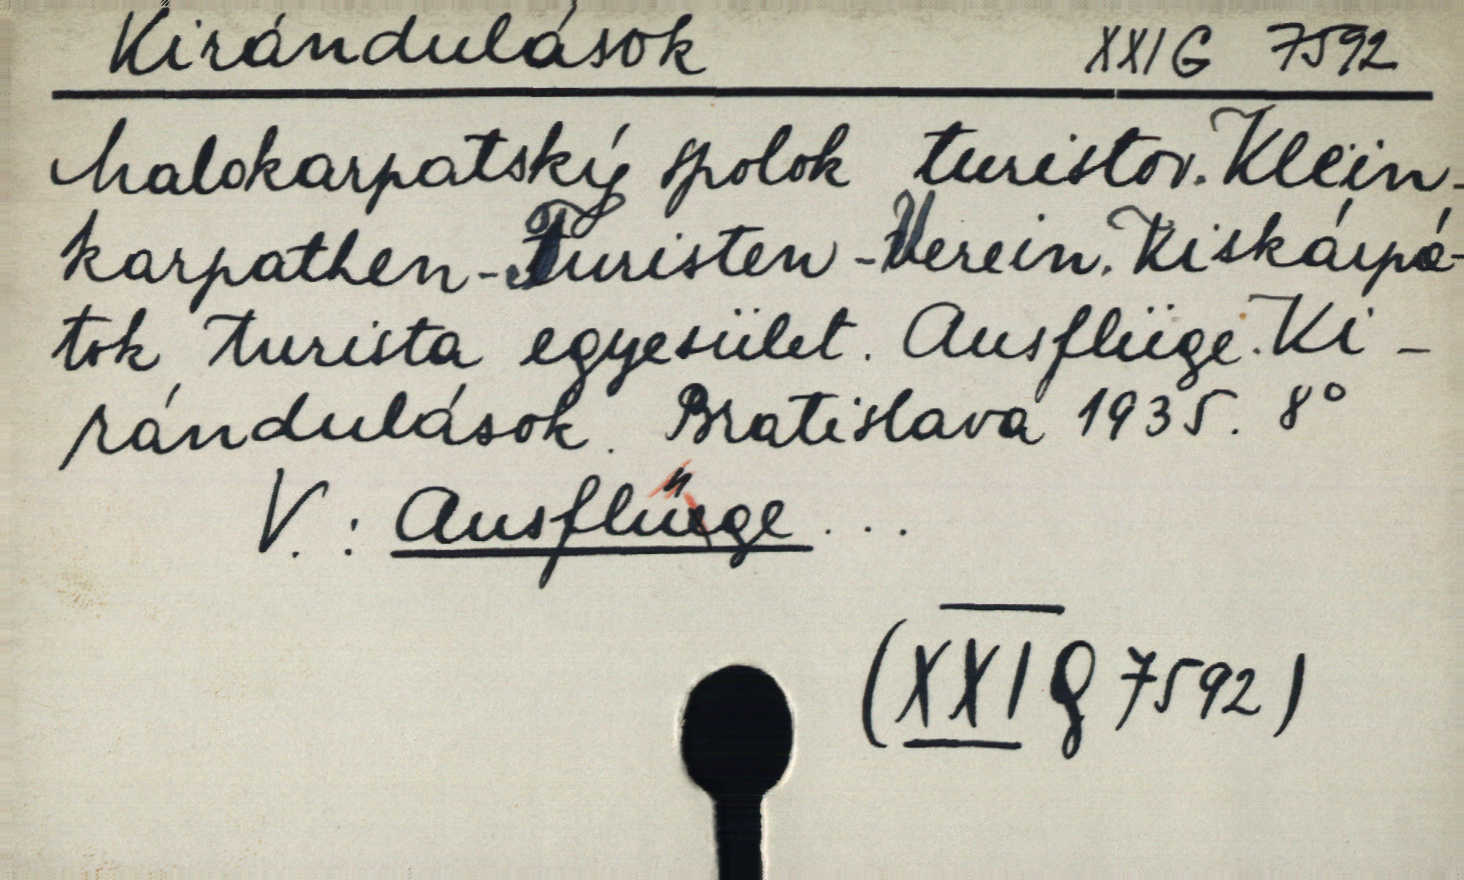 Kirándulások XXI G 7592
Malokarpatský spolok turistov. Klein-
karpathen-Turisten-Verein. Kiskárpá-
tok turista egyesület. Ausflüge. Ki-
rándulások. Bratislava 1935. 8°
V.: Ausflüge...
(XXI G 7592)